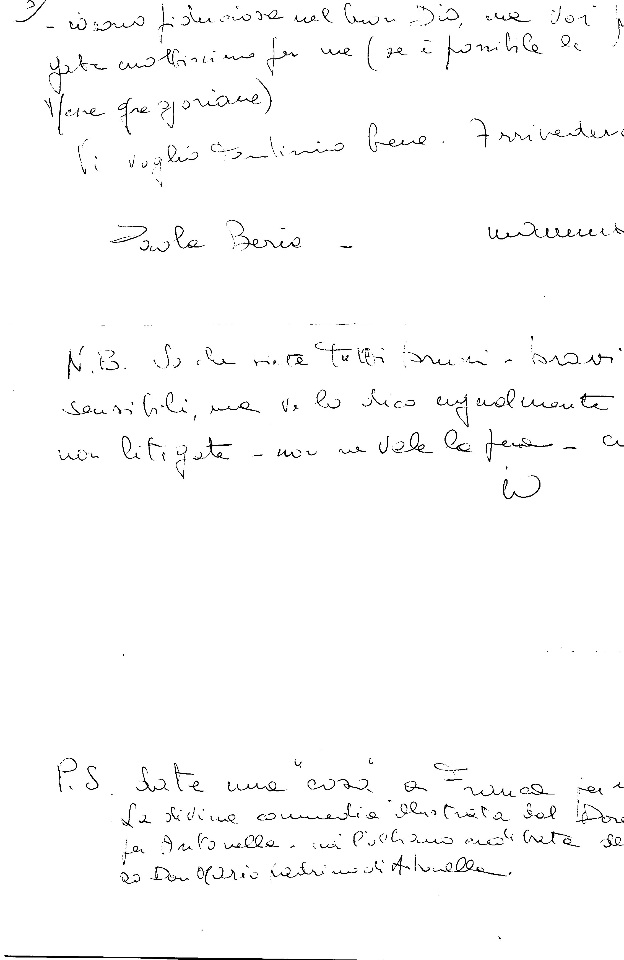 3)
- sono fiduciosa nel buon Dio, ma voi p
gate moltissimo per me (se è possibile le
Messe gregoriane)
Vi voglio tantissimo bene. Arriveder
Paola Berio -
N.B. So che siete tutti buoni - bravi
sensibili, ma ve lo dico ugualmente
non litigate - non ne vale la pena -
P.S. Date una "cosa" a Franca per
La divina commedia illustrata dal Dor
per Antonella - mi
Don Mario di Antonella.